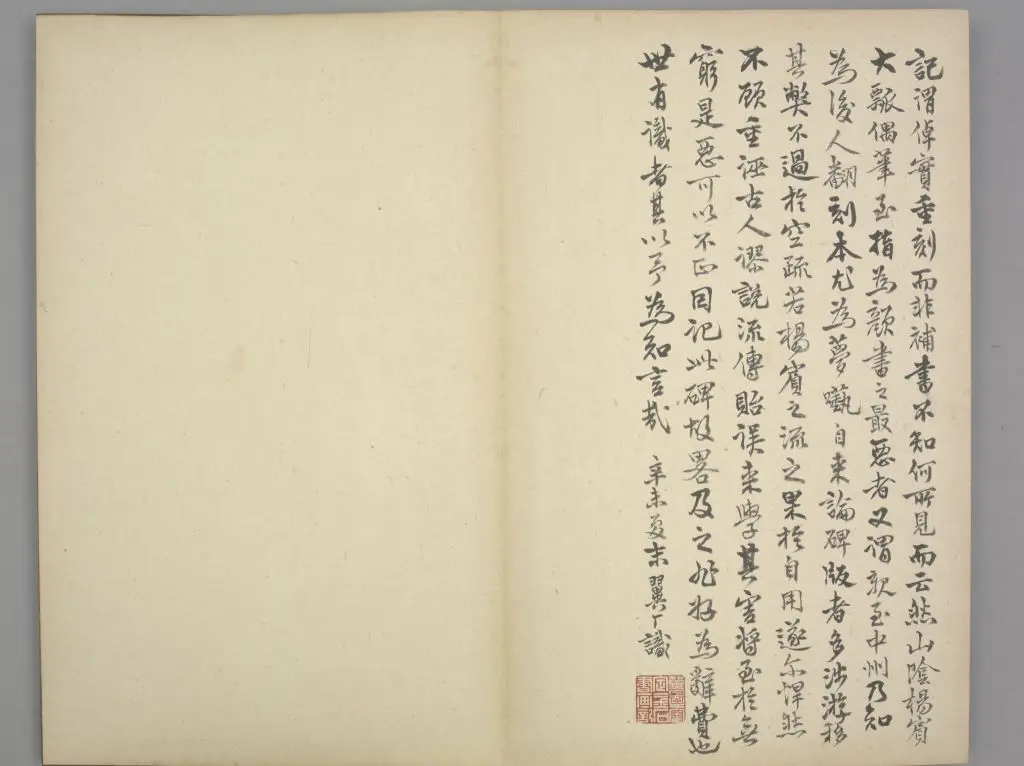 記謂倬實重刻而非補書不知何所見而云然山陰楊賓
大瓢偶筆至指為顏書之最惡者又謂親至中州乃知
為後人翻刻本尤為夢囈自來論碑版者多涉游移
其弊不過於空疏若楊賓之流之果於自用遂爾悍然
不顧重誣古人謬說流傳貽誤來學其害將至於無
窮是惡可以不正因記此碑故畧及之非好為辭費也
世有識者其以予為知言哉
辛未夏末翼厂識